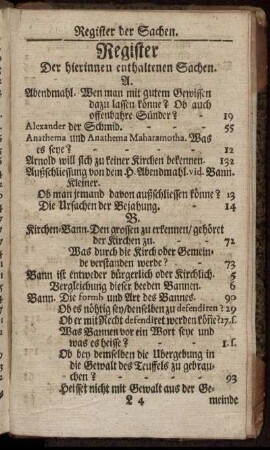 Register der Sachen.
Register
Der hierinnen enthaltenen Sachen.
A.
Abendmahl. Wen man mit gutem Gewissen
dazu lassen könne? Ob auch
offenbahre Sünder? - 19
Alexander der Schmid. - - 55
Anathema und Anathema Maharamotha. Was
es seye? - - - 12
Arnold will sich zu keiner Kirchen bekennen. 132
Außschliessung von dem H. Abendmahl. vid. Bann.
Kleiner.
Ob man jemand davon außschliessen könne? 13
Die Ursachen der Bejahung. - 14
B.
Kirchen-Bann. Den grossen zu erkennen/ gehöret
der Kirchen zu. - - 72
Was durch die Kirch oder Gemein-
de verstanden werde? - 73
Bann ist entweder bürgerlich oder Kirchlich. 5
Vergleichung dieser beeden Bannen. 6
Bann. Die formb und Art des Bannes. 90
Ob es nöhtig sey/ denselben zu defendiren? 29
Ob er mit Recht defendiret werden köñe? 27. s.
Was Bannen vor ein Wort seye und
was es heisse? - - 1. s.
Ob bey demselben die Ubergebung in
die Gewalt des Teuffels zu gebrau-
chen? - - - 93
Heisset nicht mit Gewalt aus der Ge-
L 4 meinde